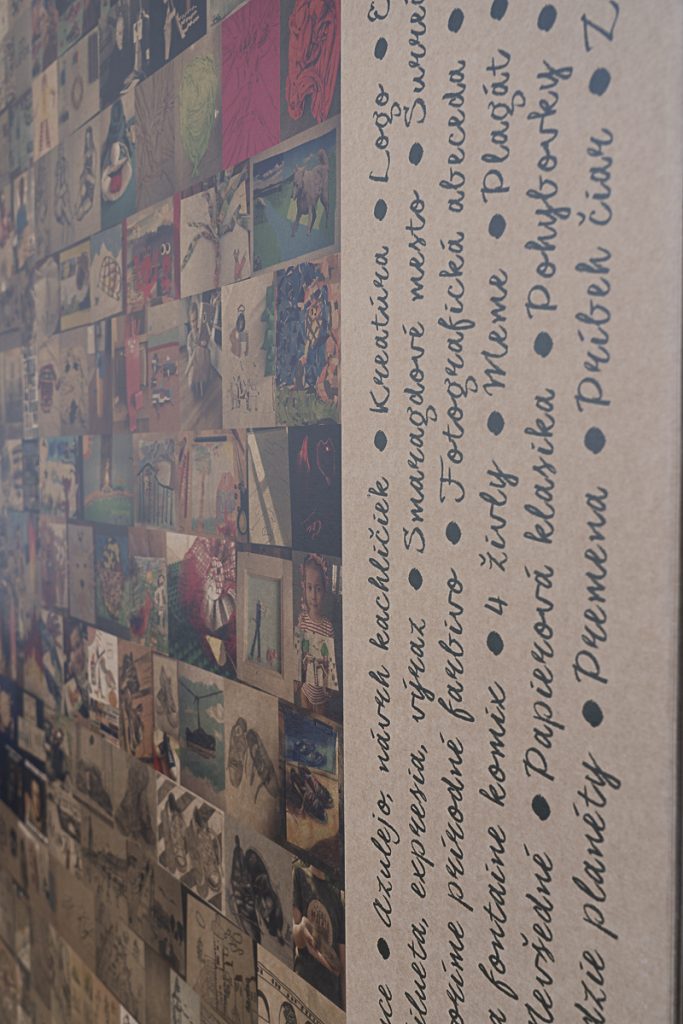 ● Azulejo, návrh kachličiek ● Kreatúra ● Logo ●
expresia, výraz ● Smaragdové mesto ●
prírodné farbivo ● Fotografická abeceda ●
fontaine komix ● 4 živly ● Meme ● Plagát ●
Nevšedné ● Papierová klasika ● Pohybovky ●
planéty ● Premena ● Príbeh čiar ●